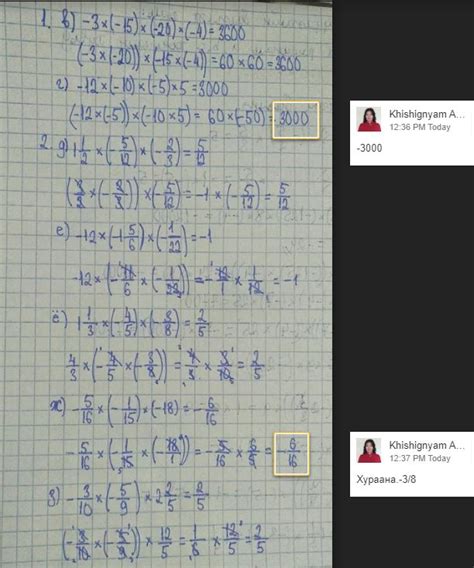 1. в) -3×(-15)×(-20)×(-4)=3600
(-3×(-20))×(-15×(-4))=60×60=3600
г) -12×(-10)×(-5)×5=3000
(-12×(-5))×(-10×5)=60×(-50)=3000
Khishignyam A...
12:36 PM Today
-3000
2. д) 1 1/2 ×(-5/12)×(-2/3)=5/12
×(-5/12)=-1×(-5/12)=5/12
е) -12×(-1 5/6)×(-1/22)=-1
-12×(-11/6 ×(-1/22))= = -1
ё) 1 1/3 ×(-4/5)×(-3/8)=2/5
4/3 ×(-4/5 ×(-3/8))=4/3 × 3/10 = 2/5
ж) -5/16 ×(-1/15)×(-18)=-6/16
-5/16 ×(-1/15 ×(-18/1))=-5/16 × 6/5 = -6/16
Khishignyam A...
12:37 PM Today
Хураана.-3/8
з) -3/10 ×(-5/9)×2 2/5=2/5
(-3/10 ×(-5/9))× 12/5 = 1/6 × 12/5 = 2/5